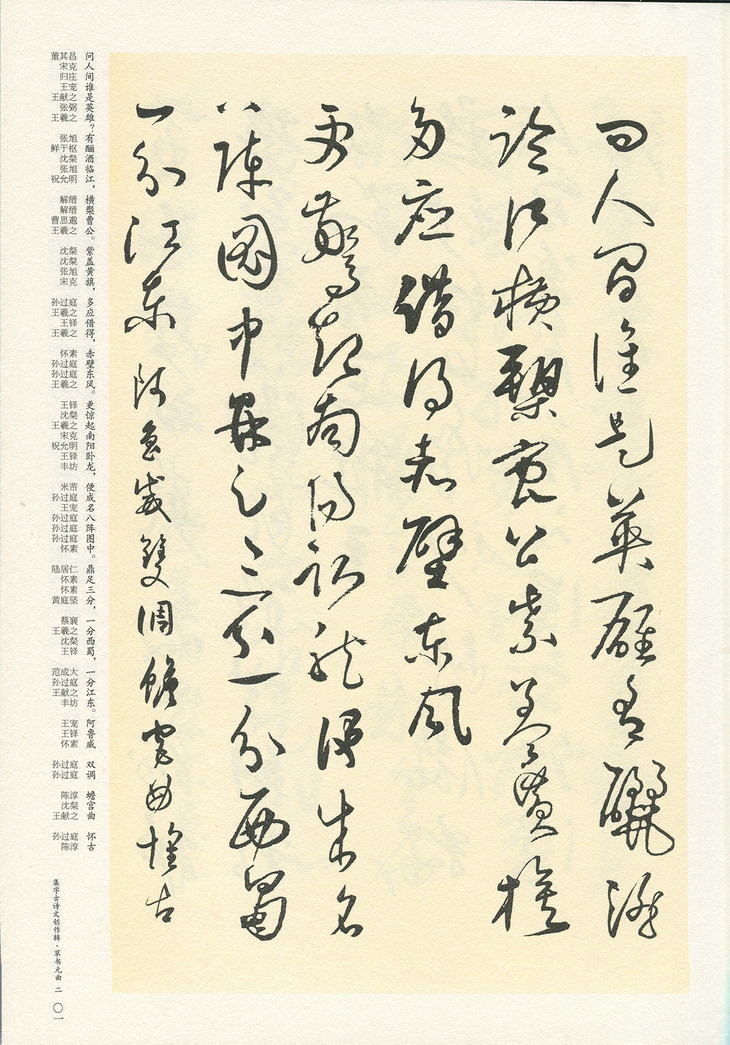 問人間誰是英雄有釃酒
臨江橫槊曹公紫蓋黃旗
多應借得赤壁東風
更驚起南陽臥龍便成名
八陣圖中鼎足三分一分西蜀
一分江東 阿魯威雙調蟾宮曲懷古
问人间谁是英雄?有酾酒临江,横槊曹公。紫盖黄旗,多应借得,赤壁东风。更惊起南阳卧龙,便成名八阵图中。鼎足三分,一分西蜀,一分江东。 阿鲁威 双调 蟾宫曲 怀古
董其昌
宋克
归庄
王宠
王献之
张弼
王羲之
张旭
鲜于枢
沈粲
张旭
祝允明
解缙
解缙
曹思邈
王羲之
沈粲
沈粲
张旭
宋克
孙过庭
王羲之
王铎
王羲之
怀素
孙过庭
孙过庭
王羲之
王铎
沈粲
王羲之
宋克
祝允明
王铎
丰坊
米芾
孙过庭
王宠
孙过庭
孙过庭
孙过庭
怀素
陆居仁
怀素
怀素
黄庭坚
蔡襄
王羲之
沈粲
王铎
范成大
孙过庭
王献之
丰坊
王宠
王铎
怀素
孙过庭
孙过庭
陈淳
沈粲
王献之
孙过庭
陈淳
集字古诗文创作辑·草书元曲 二 〇一